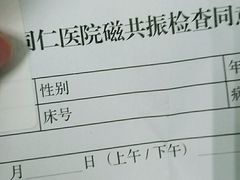 同仁医院磁共振检查同意
性别 年
床号 病
月 日(上午/下午)